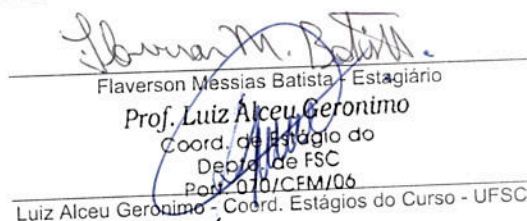 Flaverson M. Batist.
Flaverson Messias Batista - Estagiário
Prof. Luiz Alceu Geronimo
Coord. de Estágio do
Depto. de FSC
Port. 070/CFM/06
Luiz Alceu Geronimo - Coord. Estágios do Curso - UFSC